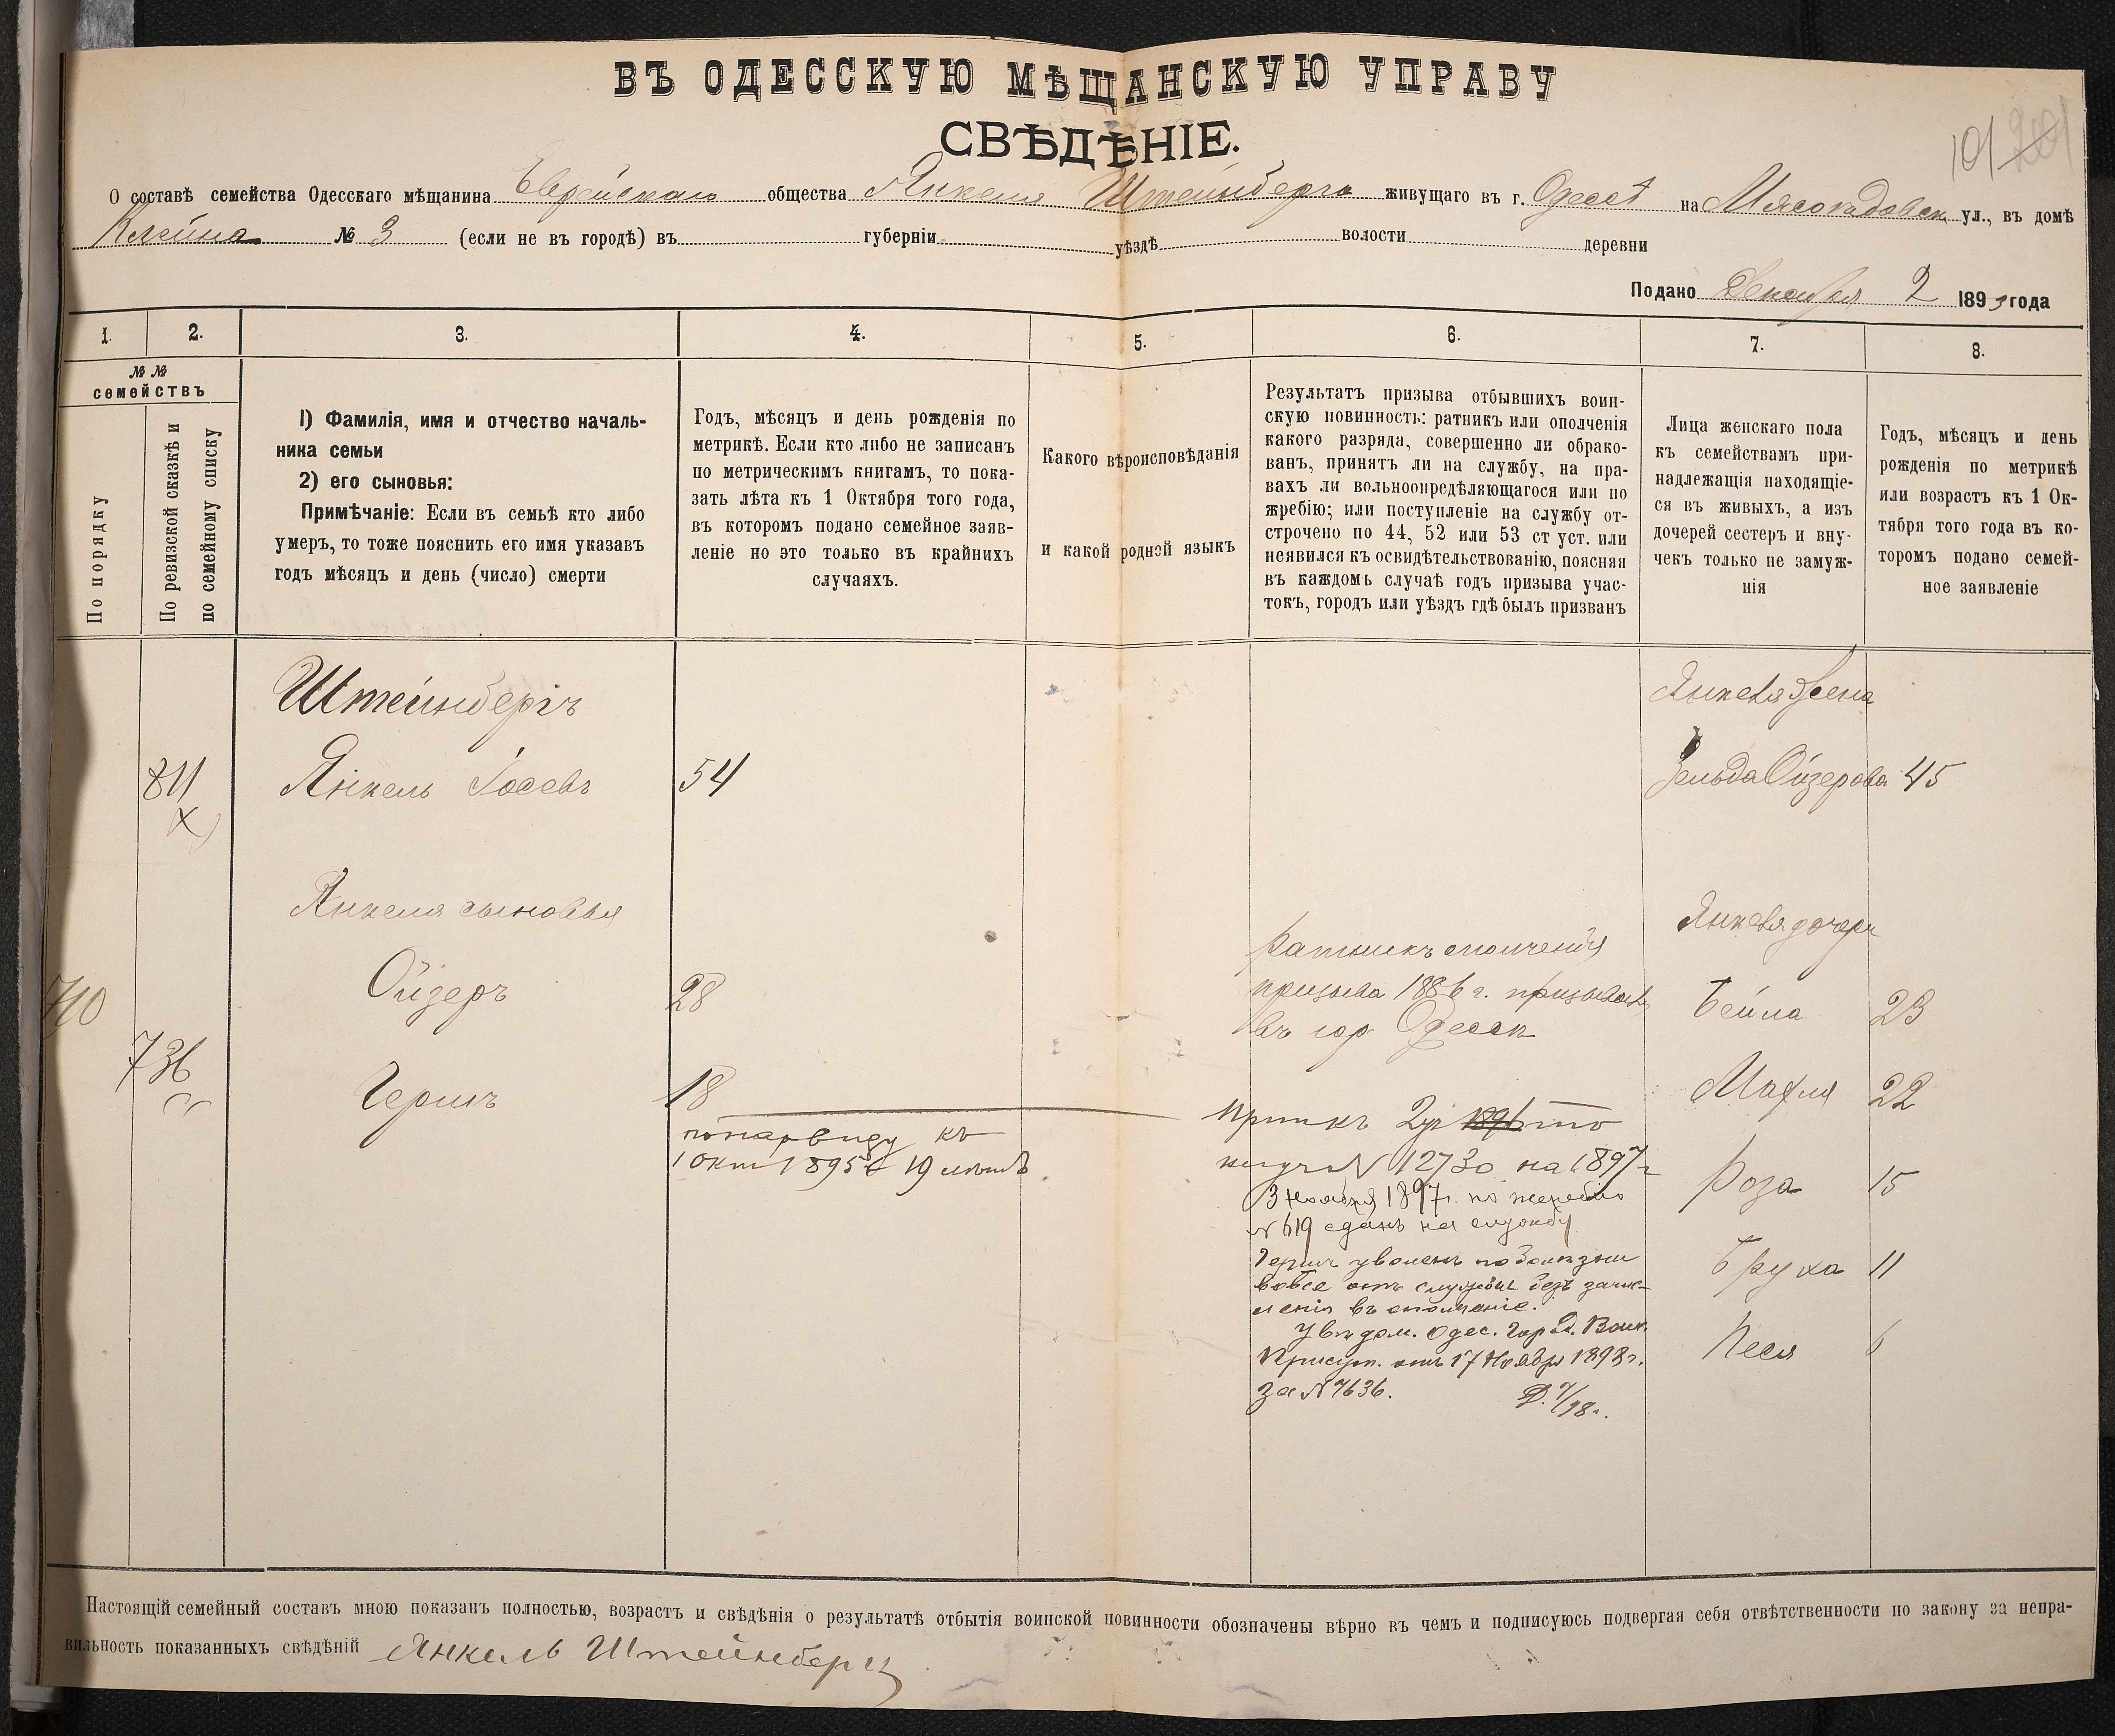 ВЪ ОДЕССКУЮ МѢЩАНСКУЮ УПРАВУ
СВѢДѢНІЕ.
101 201
О составѣ семейства Одесскаго мѣщанина Еврейскаго общества Янкеля Штейнберга живущаго въ г. Одессѣ на Мясоѣдовск ул., въ домѣ
Клейна № 3 (если не въ городѣ) въ губерніи уѣздѣ волости деревни
Подано Декабря 2 1893 года
1. 2. 3. 4. 5. 6. 7. 8.
№ №
семействъ
По порядку
По ревизской сказкѣ и
по семейному списку
1) Фамилія, имя и отчество началь-
ника семьи
2) его сыновья:
Примѣчаніе: Если въ семьѣ кто либо
умеръ, то тоже пояснить его имя указавъ
годъ мѣсяцъ и день (число) смерти
Годъ, мѣсяцъ и день рожденія по
метрикѣ. Если кто либо не записанъ
по метрическимъ книгамъ, то пока-
зать лѣта къ 1 Октября того года,
въ которомъ подано семейное заяв-
леніе но это только въ крайнихъ
случаяхъ.
Какого вѣроисповѣданія
и какой родной языкъ
Результатъ призыва отбывшихъ воин-
скую повинность: ратникъ или ополченія
какого разряда, совершенно ли обрако-
ванъ, принятъ ли на службу, на пра-
вахъ ли вольноопредѣляющагося или по
жребію; или поступленіе на службу от-
строчено по 44, 52 или 53 ст уст. или
неявился къ освидѣтельствованію, поясняя
въ каждомъ случаѣ годъ призыва учас-
токъ, городъ или уѣздъ гдѣ былъ призванъ
Лица женскаго пола
къ семействамъ при-
надлежащія находящіе-
ся въ живыхъ, а изъ
дочерей сестеръ и вну-
чекъ только не замуж-
нія
Годъ, мѣсяцъ и день
рожденія по метрикѣ
или возрастъ къ 1 Ок-
тября того года въ ко-
торомъ подано семей-
ное заявленіе
Штейнбергъ
Янкеля жена
811 Янкель Іосевъ 54
Зельда Ойзерова 45
х
Янкеля сыновья
Янкеля дочери
710 Ойзеръ 28
Ратникъ ополченія
призыва 1886 г. призывался
въ гор Одессѣ
Бейла 23
736 Гершъ 18
Малля 22
по нар виду къ
1 окт 1895 г 19 лѣтъ
N 12730 на 1897 г
3 Ноября 1897 г. по жеребію
N 619 сданъ на службу
Роза 15
Гершъ уволенъ по болѣзни
вовсе отъ службы безъ зачис-
ленія въ ополченіе.
Бруха 11
Увѣдом. Одес. Гор. Воин.
Присут. отъ 17 Ноября 1898 г.
за N 7636.
Песя 6
Настоящій семейный составъ мною показанъ полностью, возрастъ и свѣдѣнія о результатѣ отбытія воинской повинности обозначены вѣрно въ чемъ и подписуюсь подвергая себя отвѣтственности по закону за непра-
вильность показанныхъ свѣдѣній Янкель Штейнбергъ